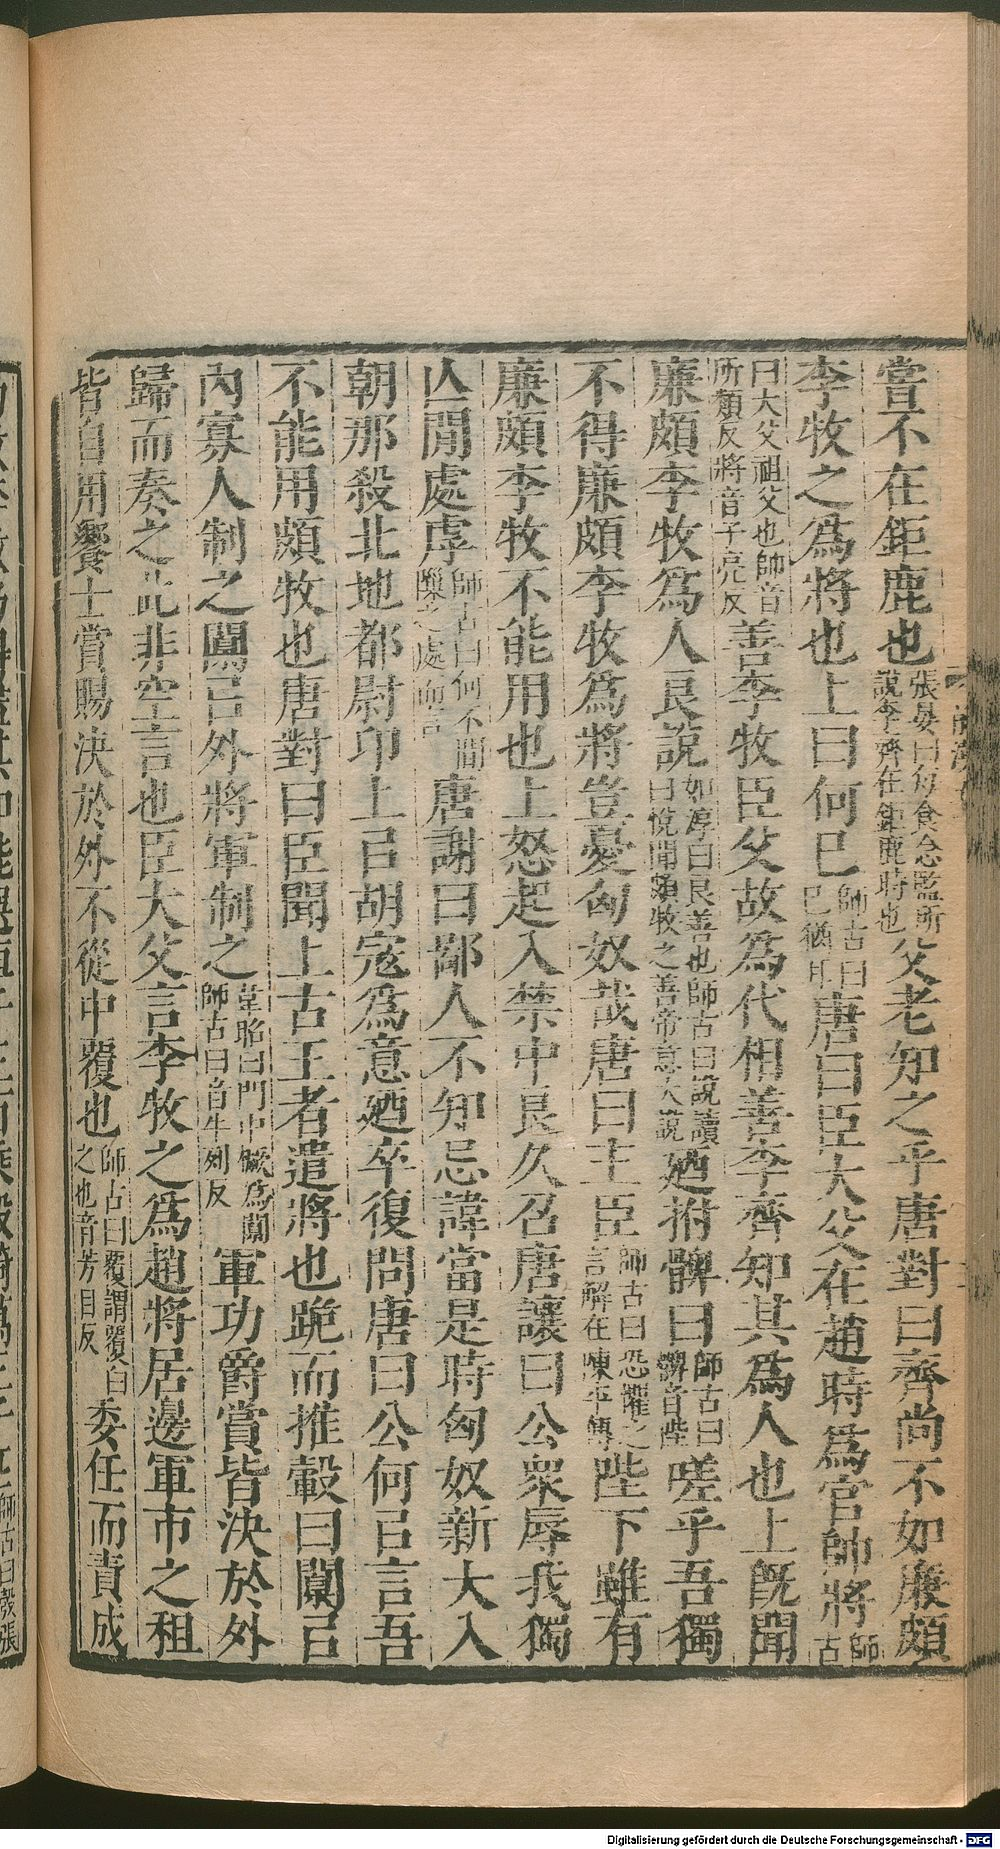 嘗不在鉅鹿也張晏曰每食念監所說李齊在鉅鹿時也父老知之乎唐對曰齊尚不如廉頗
李牧之為將也上曰何已師古曰已猶由唐曰臣大父在趙時為官帥將師古
曰大父祖父也帥音所類反將音子亮反善李牧臣父故為代相善李齊知其為人也上既聞
廉頗李牧為人良說如淳曰良善也師古曰說讀曰悅聞頗牧之善帝意大說廼拊髀曰師古曰髀音陛嗟乎吾獨
不得廉頗李牧為將豈憂匈奴哉唐曰主臣師古曰恐懼之言解在陳平傳陛下雖有
廉頗李牧不能用也上怒起入禁中良久召唐讓曰公眾辱我獨
亾閒處虖師古曰何不間隙之處而言唐謝曰鄙人不知忌諱當是時匈奴新大入
朝那殺北地都尉卬上㠯胡寇為意廼卒復問唐曰公何㠯言吾
不能用頗牧也唐對曰臣聞上古王者遣將也跪而推轂曰闑㠯
內寡人制之闑㠯外將軍制之韋昭曰門中橛為闑師古曰音牛列反軍功爵賞皆決於外
歸而奏之此非空言也臣大父言李牧之為趙將居邊軍市之租
皆自用饗士賞賜決於外不從中覆也師古曰覆謂覆白之也音芳目反委任而責成
Digitalisierung gefördert durch die Deutsche Forschungsgemeinschaft - DFG